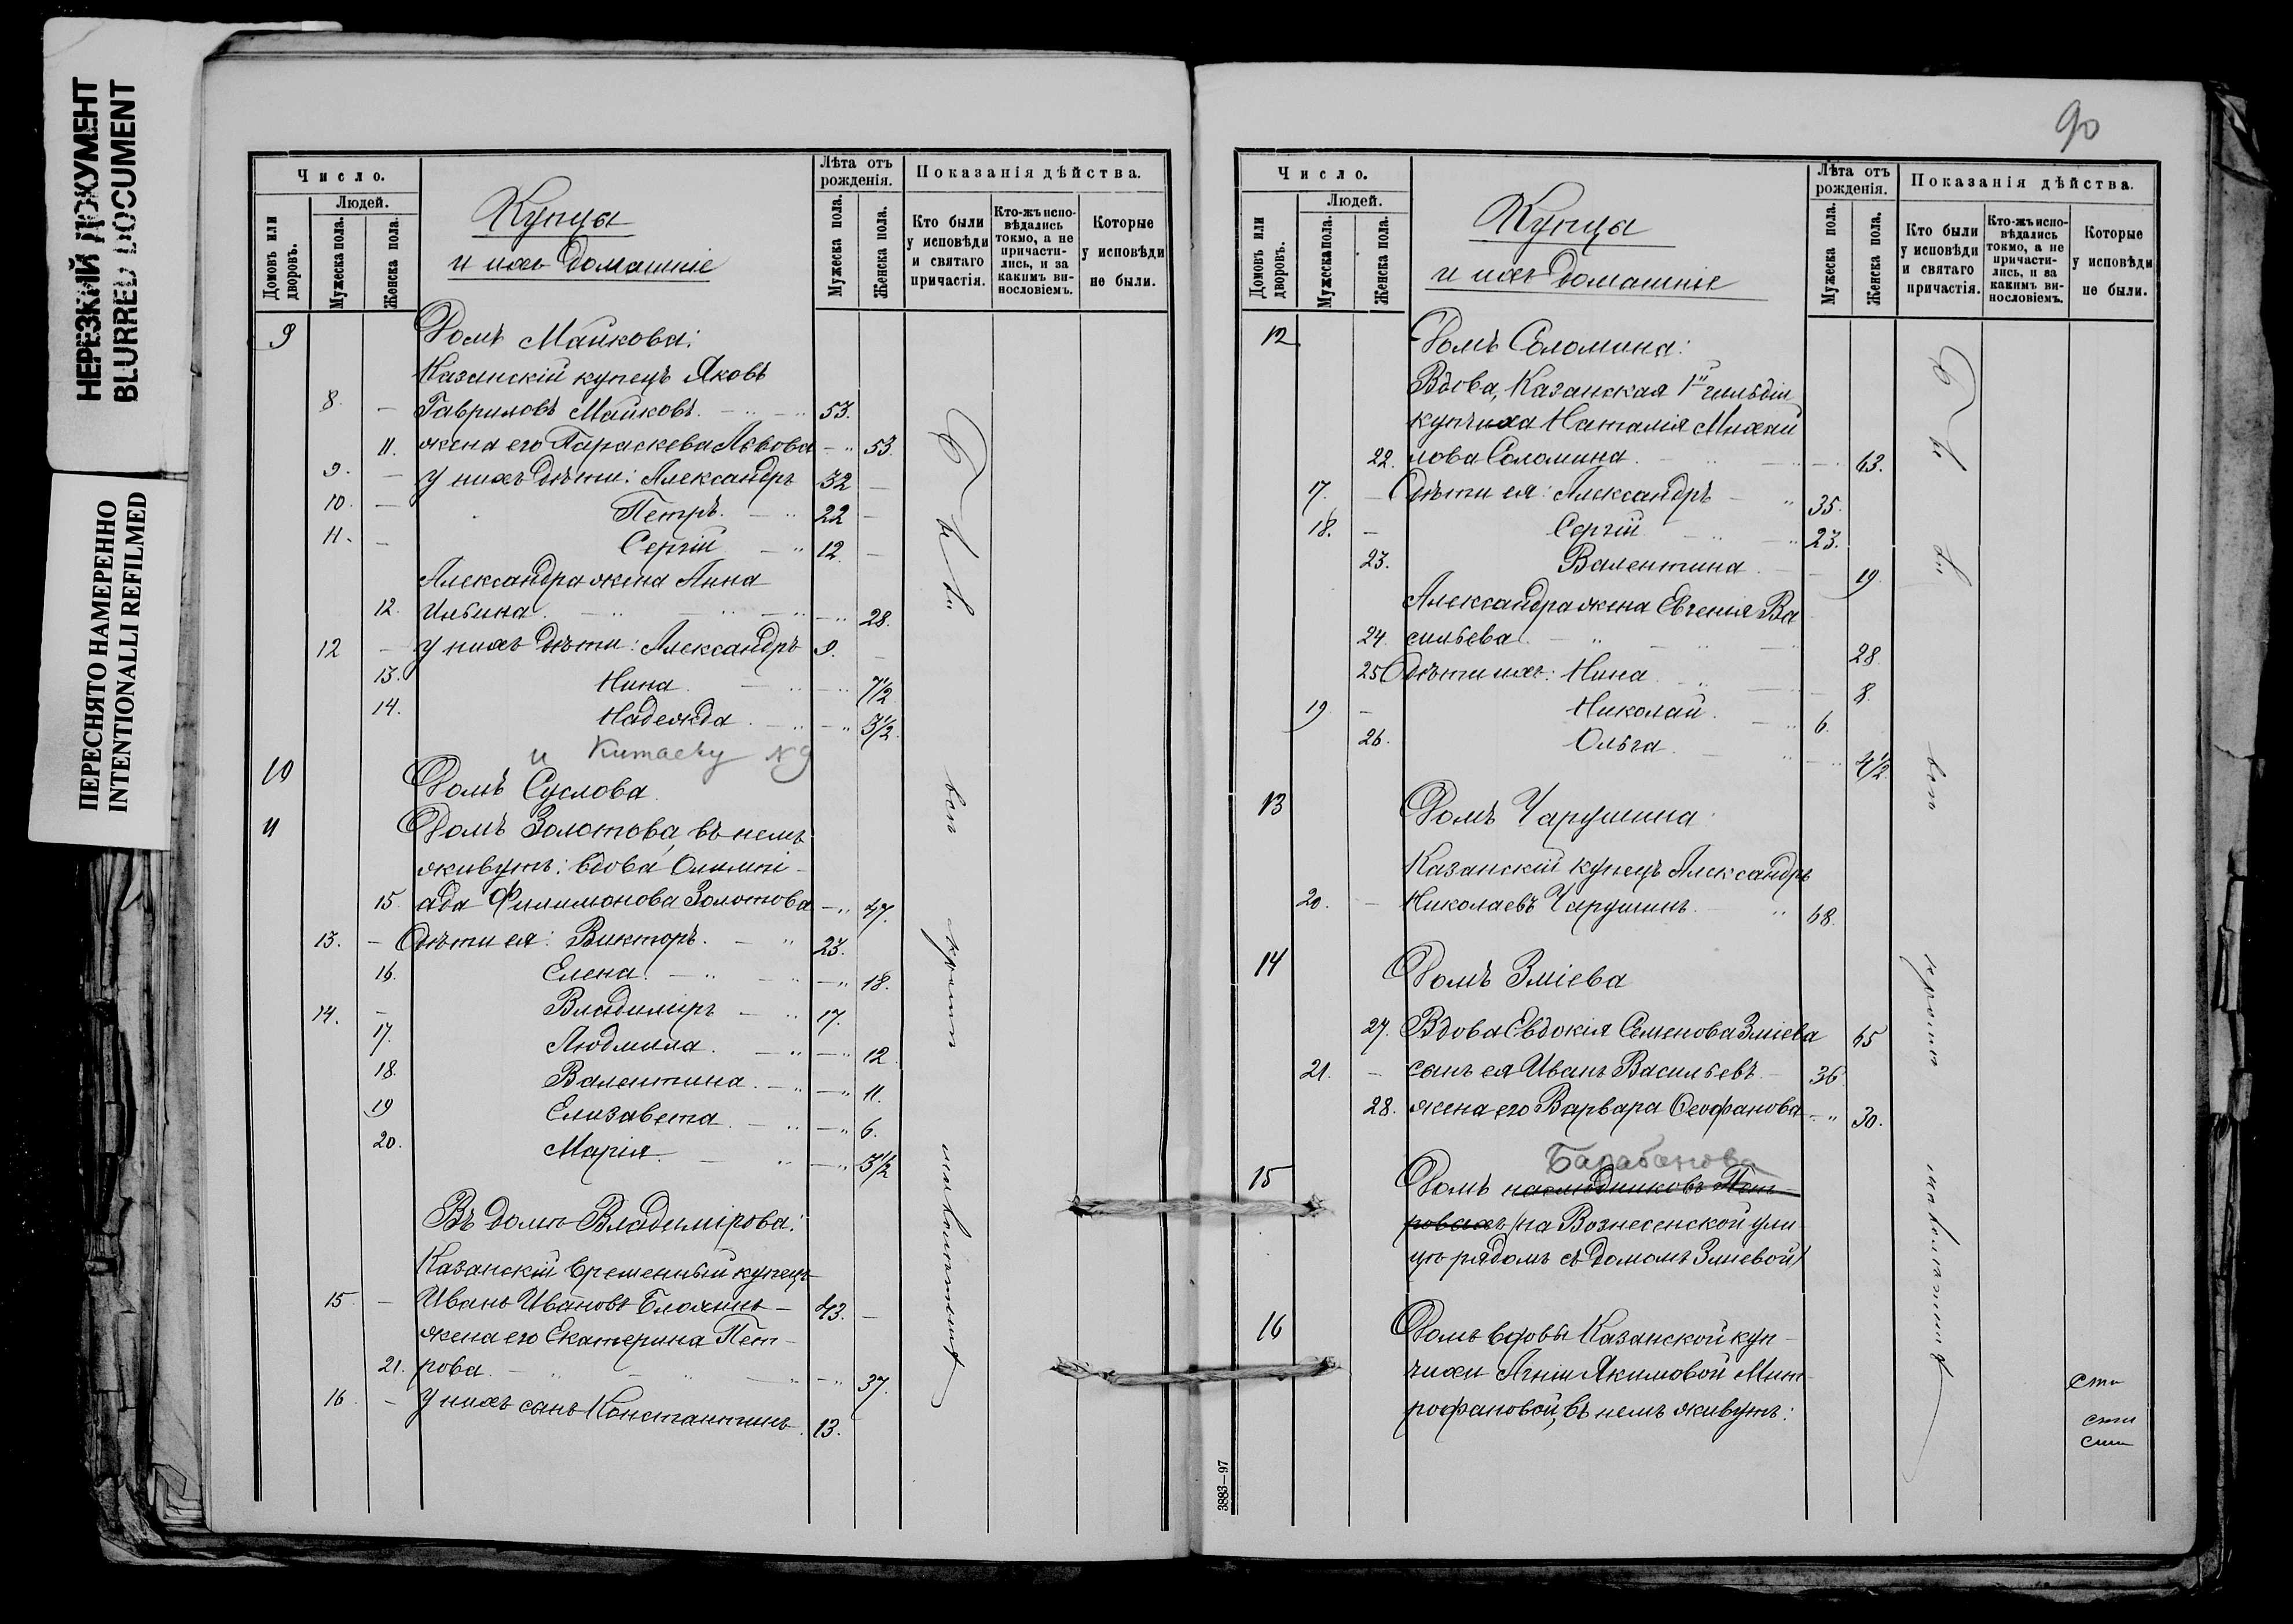 НЕРЕЗКИЙ ДОКУМЕНТ
BLURRED DOCUMENT
ПЕРЕСНЯТО НАМЕРЕННО
INTENTIONALLI REFILMED
Число.
Людей.
Домовъ или дворовъ.
Мужеска пола.
Женска пола.
Купцы
и ихъ домашніе
Лѣта отъ рожденія.
Мужеска пола.
Женска пола.
Показанія дѣйства.
Кто были у исповѣди и святаго причастія.
Кто-жъ исповѣдались токмо, а не причастились, и за какимъ винословіемъ.
Которые у исповѣди не были.
9 Домъ Майкова:
Казанскій купецъ Яковъ
8. — Гавриловъ Майковъ. 53.
11. жена его Параскева Львова 53.
9. — у нихъ дѣти: Александръ 32 —
10. — Петръ. 22 —
11. — Сергій 12 —
Александра жена Анна
12. Ильина. 28.
12 — у нихъ дѣти: Александръ 9. —
13. Нина. 7½
14. Надежда. 3½
и Китаеву №9
10 Домъ Суслова.
11 Домъ Золотова, въ немъ
живутъ: вдова Олимпі-
15. ада Филимонова Золотова 47.
13. — Дѣти ея: Викторъ. 23.
16. Елена. 18.
14. — Владиміръ 17.
17. Людмила. 12
18. Валентина. 11.
19 Елизавета. 6.
20. Марія. 3½
Въ домѣ Владимірова:
Казанскій временный купецъ
15 — Иванъ Ивановъ Бложинъ 43. —
жена его Екатерина Пет-
21. рова. 37.
16. — у нихъ сынъ Константинъ. 13.
Были всѣ кромѣ малолѣтнихъ
90
Число.
Людей.
Домовъ или дворовъ.
Мужеска пола.
Женска пола.
Купцы
и ихъ домашніе
Лѣта отъ рожденія.
Мужеска пола.
Женска пола.
Показанія дѣйства.
Кто были у исповѣди и святаго причастія.
Кто-жъ исповѣдались токмо, а не причастились, и за какимъ винословіемъ.
Которые у исповѣди не были.
12 Домъ Соломина:
Вдова, Казанская 1й гильдіи
купчиха Наталія Михай
22. лова Соломина. 63.
17. — Дѣти ея: Александръ 35.
18. — Сергій 23.
23. Валентина. 19
Александра жена Евгенія Ва
24. сильева. 28
25 Дѣти ихъ: Нина 8.
19 — Николай. 6.
26. Ольга. 4½
13 Домъ Чарушина:
Казанскій купецъ Александръ
20. — Николаевъ Чарушинъ. 68.
14 Домъ Зміева
27. Вдова Евдокія Семенова Зміева 65
21. — сынъ ея Иванъ Васильевъ 36
28. жена его Варвара Ѳеофанова 30.
Барабанова
15 Домъ наслѣдниковъ Пет-
ровыхъ (на Вознесенской ули
цѣ рядомъ съ домомъ Зміевой)
16 Домъ вдовы Казанской куп-
чихи Агніи Якимовой Мит-
рофановой, въ немъ живутъ:
Были всѣ кромѣ малолѣтнихъ
3883—97